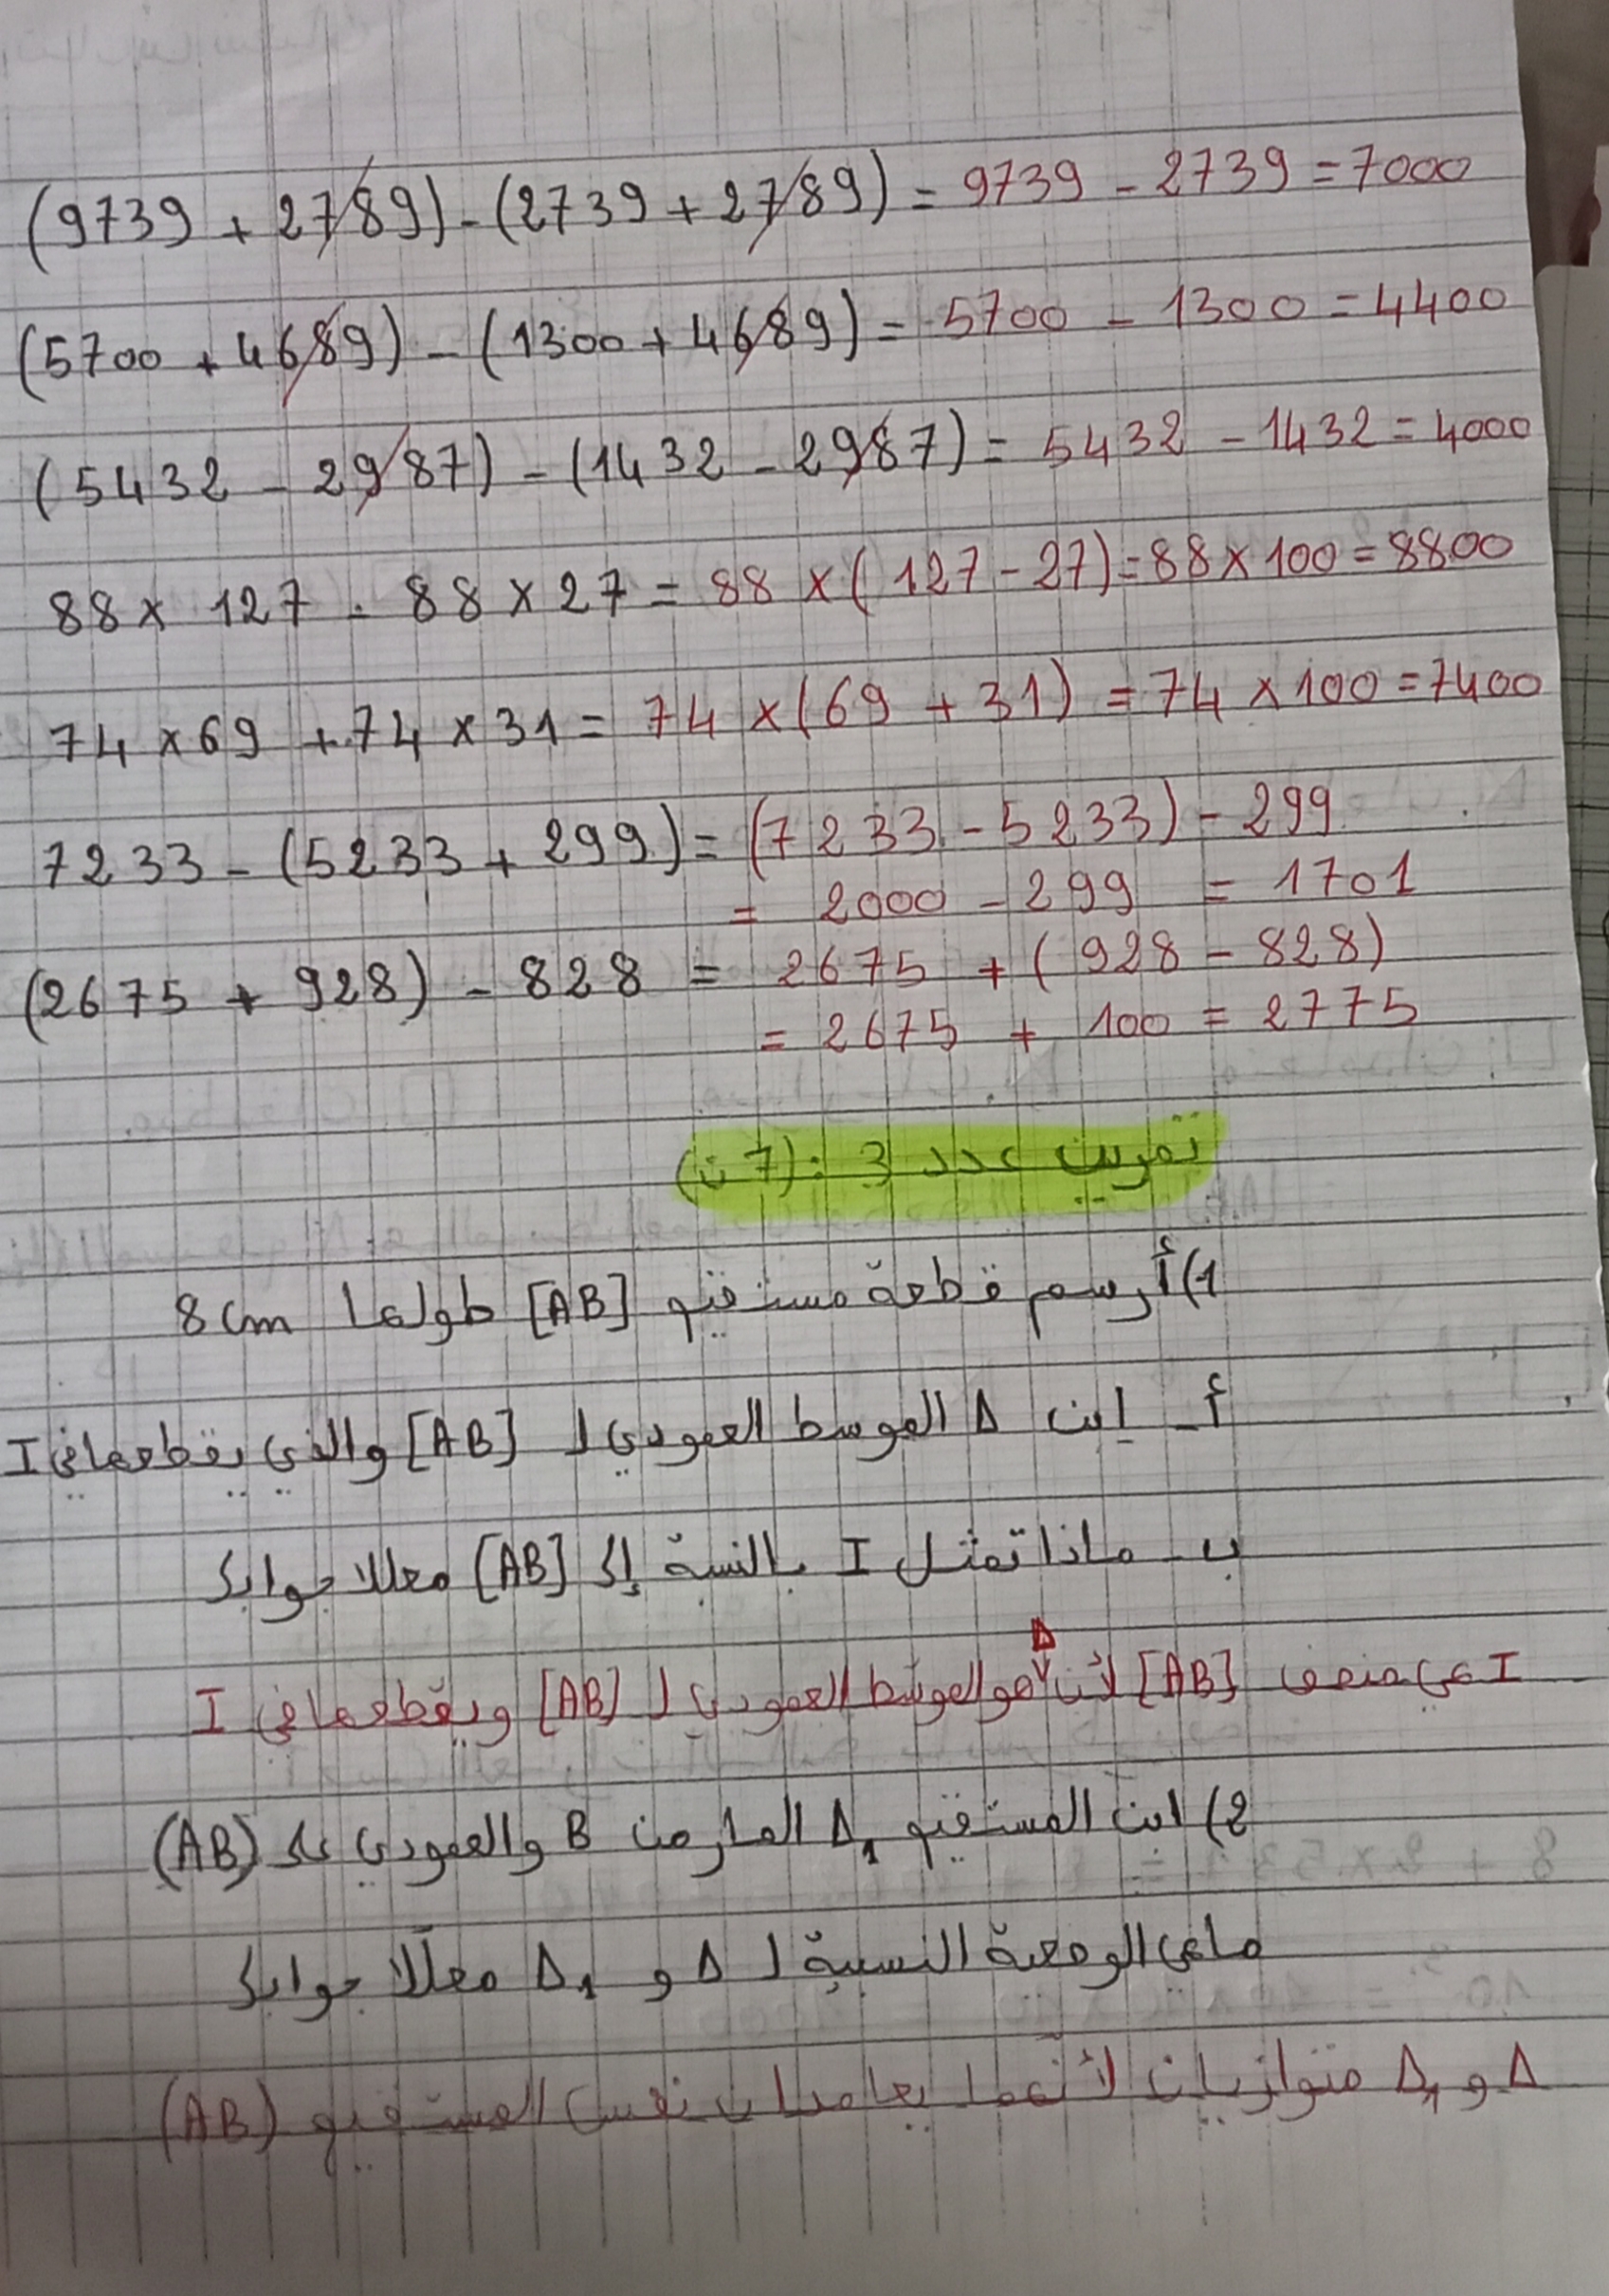 (9739 + 2789) - (2739 + 2789) = 9739 - 2739 = 7000
(5700 + 4689) - (1300 + 4689) = 5700 - 1300 = 4400
(5432 - 2987) - (1432 - 2987) = 5432 - 1432 = 4000
88 × 127 - 88 × 27 = 88 × (127 - 27) = 88 × 100 = 8800
74 × 69 + 74 × 31 = 74 × (69 + 31) = 74 × 100 = 7400
7233 - (5233 + 299) = (7233 - 5233) - 299
= 2000 - 299 = 1701
(2675 + 928) - 828 = 2675 + (928 - 828)
= 2675 + 100 = 2775
تمرين عدد 3 : (7 ن)
1) أرسم قطعة مستقيم [AB] طولها 8 cm
أ - إبن Δ الموسط العمودي لـ [AB] والذي يقطعها في I
ب - ماذا تمثل I بالنسبة إلى [AB] معللا جوابك
I هي منصف [AB] لأن Δ هو الموسط العمودي لـ [AB] ويقطعها في I
2) ابن المستقيم Δ₁ المار من B والعمودي على (AB)
ماهي الوضعية النسبية لـ Δ و Δ₁ معللّا جوابك
Δ و Δ₁ متوازيان لأنّهما يعامدان نفس المستقيم (AB)